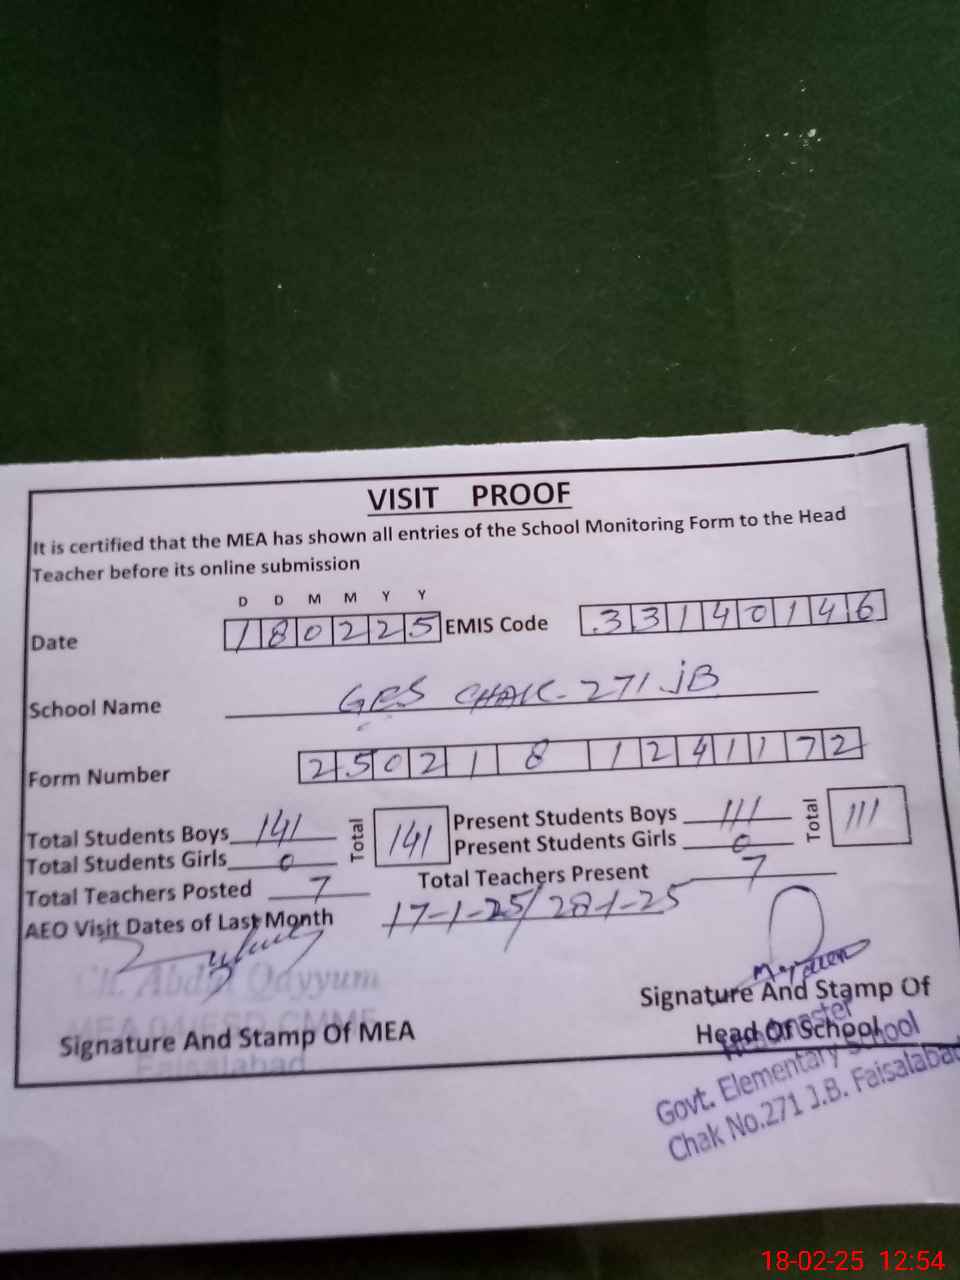 VISIT PROOF
It is certified that the MEA has shown all entries of the School Monitoring Form to the Head
Teacher before its online submission
D D M M Y Y
Date 180225 EMIS Code 33140146
School Name GES CHAK-271 JB
Form Number 2502181241172
Total Students Boys 141 Total 141 Present Students Boys 111 Total 111
Total Students Girls 0 Present Students Girls 0
Total Teachers Posted 7 Total Teachers Present 7
AEO Visit Dates of Last Month 17-1-25/28-1-25
Ch. Abdul Qayyum
Signature And Stamp Of MEA
Faisalabad
Signature And Stamp Of
Head Of School
Headmaster
Govt. Elementary School
Chak No.271 J.B. Faisalabad
18-02-25 12:54